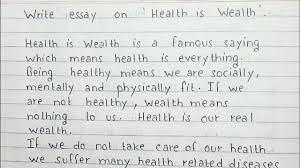 Write essay on 'Health is Wealth'.
Health is Wealth is a famous saying
which means health is everything.
Being healthy means we are socially,
mentally and physically fit. If we
are not healthy, wealth means
nothing to us. Health is our real
wealth.
If we do not take care of our health
we suffer many health related diseases